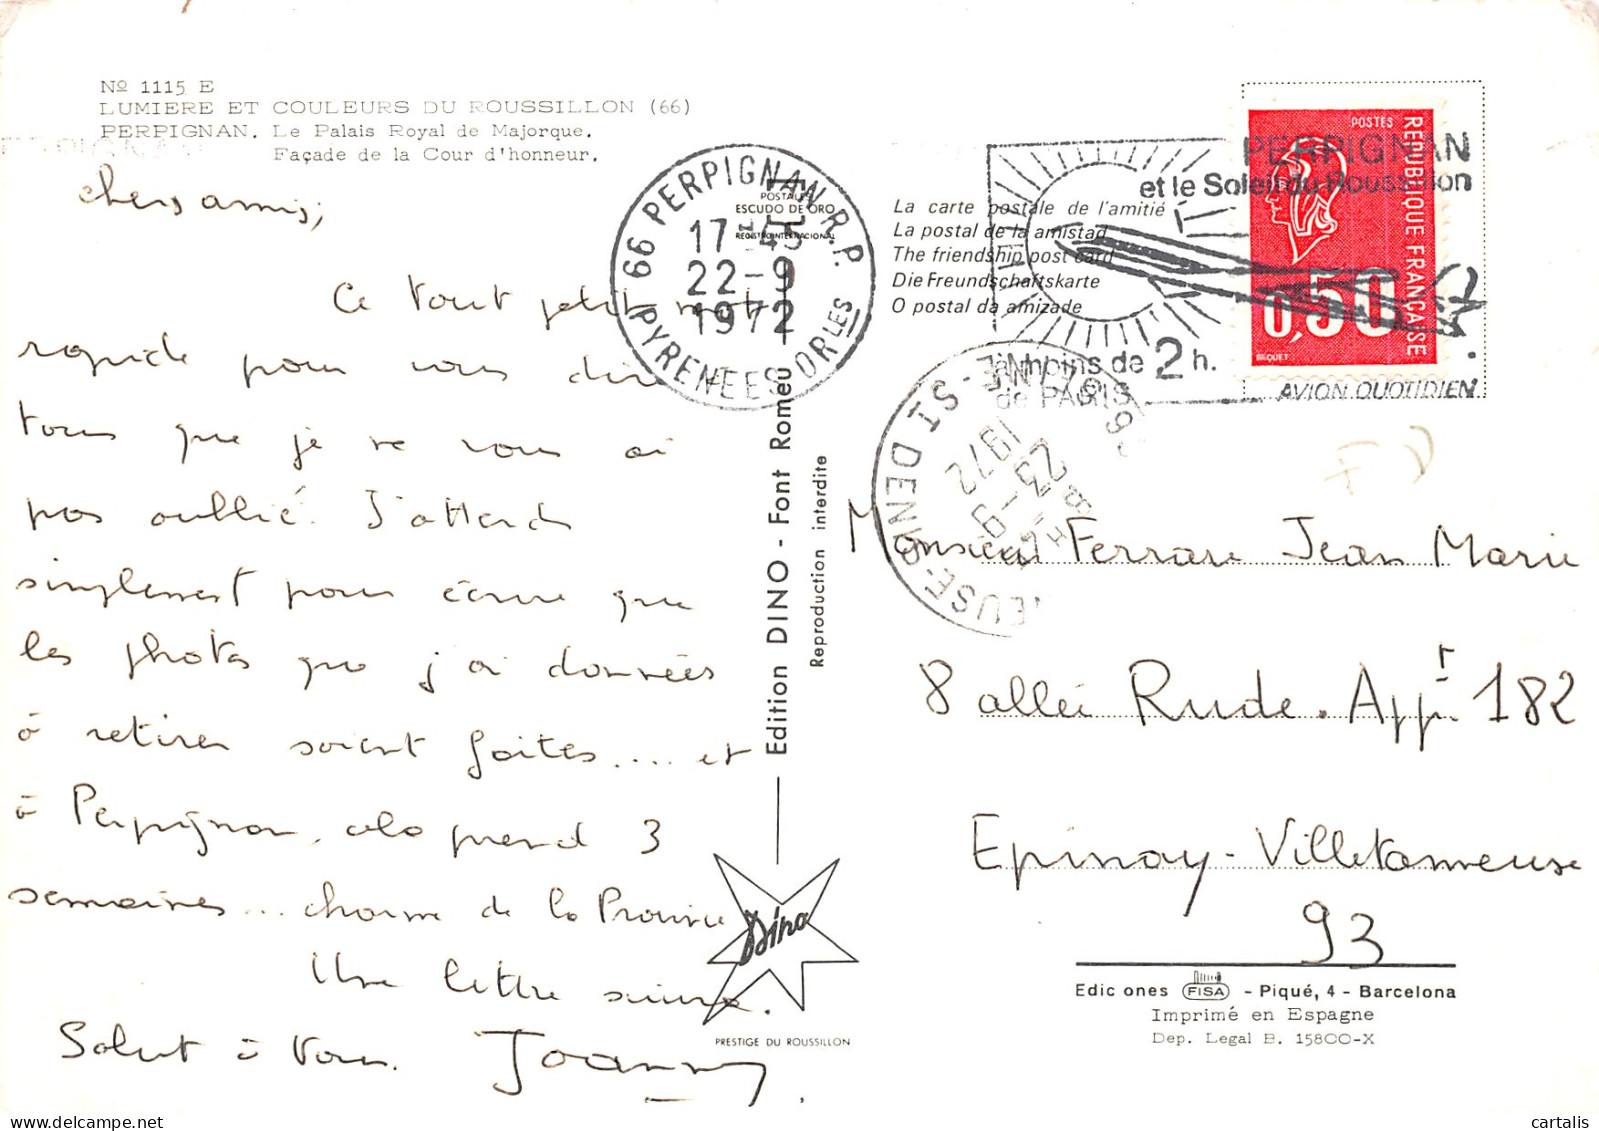 Nº 1115 E
LUMIERE ET COULEURS DU ROUSSILLON (66)
PERPIGNAN. Le Palais Royal de Majorque.
Façade de la Cour d'honneur.
chers amis,
Ce tout petit mot
rapide pour vous dire
tous que je ne vous ai
pas oublié. J'attends
simplement pour écrire que
les photos que j'ai données
à retirer soient faites.... et
à Perpignan, cela prend 3
semaines... charme de la Province
Une lettre suivra.
Salut à tous. Joanny.
66 PERPIGNAN R.P.
17-45
22-9
1972
PYRENEES ORLES
POSTALES
ESCUDO DE ORO
REGISTRO INTERNACIONAL
Edition DINO - Font Roméu
Reproduction interdite
Dino
PRESTIGE DU ROUSSILLON
La carte postale de l'amitié
La postal de la amistad
The friendship post card
Die Freundschaftskarte
O postal da amizade
PERPIGNAN
et le Soleil du Roussillon
à moins de 2h.
de PARIS
AVION QUOTIDIEN
POSTES
REPUBLIQUE FRANÇAISE
0,50
BEQUET
SEINE-SI DENIS
23-9
1972
Monsieur Ferrare Jean Marie
8 allée Rude. Appt 182
Epinay-Villetaneuse
93
Edic ones FISA - Piqué, 4 - Barcelona
Imprimé en Espagne
Dep. Legal B. 15800-X
cartalis